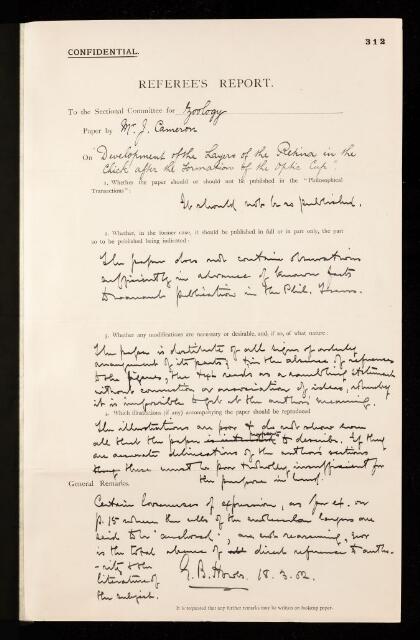 312
CONFIDENTIAL.
REFEREE'S REPORT.
To the Sectional Committee for Zoology
Paper by Mr. J. Cameron
On "Development of the Layers of the Retina in the
Chick after the Formation of the Optic Cup."
1. Whether the paper should or should not be published in the "Philosophical
Transactions":
It should not be so published.
2. Whether, in the former case, it should be published in full or in part only, the part
so to be published being indicated:
The paper does not contain observations
sufficiently in advance of known facts
to demand publication in the Phil. Trans.
3. Whether any modifications are necessary or desirable, and, if so, of what nature:
The paper is destitute of all signs of orderly
arrangement of its parts, & in the absence of references
to the figures, the reads as a rambling statement
without connection or association of ideas, whereby
it is impossible to get at the author's meaning.
4. Which illustrations (if any) accompanying the paper should be reproduced
The illustrations are poor & do not show
all that the paper to describe. If they
are accurate delineations of the author's sections
these must be poor & wholly insufficient for
the purpose in hand.
General Remarks.
Certain of expression, as for ex. on
p. 15 where the cells of the layers are
said to be "anchored", are not reassuring, nor
is the total absence of direct reference to autho-
-rity & the
literature of
the subject.
G. B. Howes. 18.3.02.
It is requested that any further remarks may be written on foolscap paper.